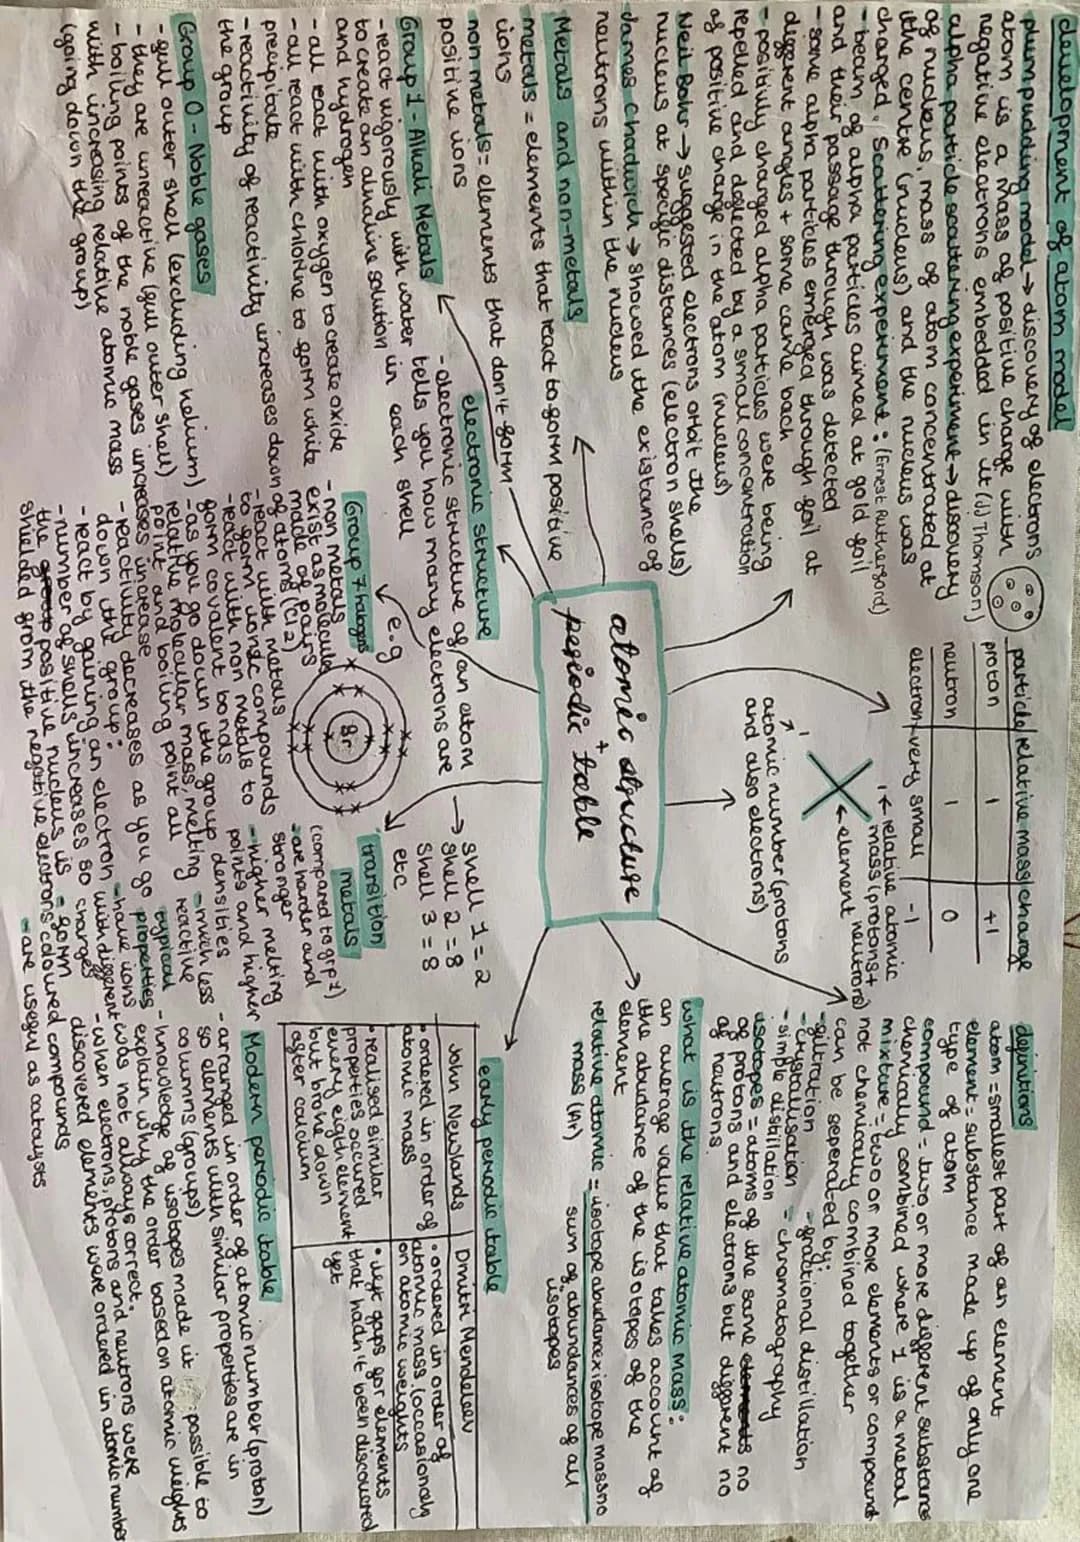 development of atom model
plum pudding model → discovery of electrons
atom is a mass of positive charge with
negative electrons embedded in it (JJ Thomson)
alpha particle scattering experiment → discovery
of nucleus, mass of atom concentrated at
the centre (nucleus) and the nucleus was
charged. Scattering experiment: (Ernest Rutherford)
- beam of alpha particles aimed at gold foil
and their passage through was detected
- some alpha particles emerged through foil at
different angles + some came back
- positively charged alpha particles were being
repelled and deflected by a small concentration
of positive charge in the atom (nucleus)
Neil Bohr → suggested electrons orbit the
nucleus at specific distances (electron shells)
James Chadwick → showed the existance of
neutrons within the nucleus
Metals and non-metals
metals = elements that react to form positive
ions
non metals = elements that don't form
positive ions
Group 1 - Alkali Metals
- react vigorously with water
to create an alkaline solution
and hydrogen
- all react with oxygen to create oxide
- all react with chlorine to form white
precipitate
- reactivity of reactivity increases down
the group
Group 0 - Noble gases
- full outer shell (excluding helium)
- they are unreactive (full outer shell)
- boiling points of the noble gases increases
with increasing relative atomic mass
(going down the group)
particle relative mass charge
proton 1 +1
neutron 1 0
electron very small -1
← relative atomic
mass (protons +
neutrons)
X ← element
atomic number (protons
and also electrons)
atomic structure
+
periodic table
electronic structure
- electronic structure of an atom
tells you how many electrons are
in each shell
→ shell 1 = 2
shell 2 = 8
shell 3 = 8
etc
e.g
Br
Group 7 halogens
- non metals
exist as molecules
made of pairs
of atoms (Cl2)
- react with metals
to form ionic compounds
- react with non metals to
form covalent bonds
- as you go down the group
relative molecular mass, melting
point and boiling point all
increase
- reactivity decreases as you go
down the group:
- react by gaining an electron
- number of shells increases so
the positive nucleus is
shielded from the negative electrons
transition
metals
(compared to grp 1)
- are harder and
stronger
- higher melting
points and higher
densities
- much less
reactive
typical
properties
- have ions
with different
charges
- form
coloured compounds
- are useful as catalysts
definitions
atom = smallest part of an element
element = substance made up of only one
type of atom
compound = two or more different substances
chemically combined where 1 is a metal
mixture = two or more elements or compounds
not chemically combined together
can be seperated by:
- filtration - fractional distillation
- crystallisation - chromatography
- simple distillation
isotopes = atoms of the same no
of protons and electrons but different no
of neutrons.
what is the relative atomic mass:
an average value that takes account of
the abudance of the isotopes of the
element
relative atomic = isotope abudance x isotope mass no
mass (Ar) sum of abundances of all
isotopes
early periodic table
John Newlands
• ordered in order of
atomic mass
• realised similar
properties occured
every eighth element
but broke down
after calcium
Dmitri Mendeleev
• ordered in order of
atomic mass (occasionaly
on atomic weights
• left gaps for elements
that hadn't been discovered
yet
Modern periodic table
- arranged in order of atomic number (proton)
so elements with similar properties are in
columns (groups)
- knowledge of isotopes made it possible to
explain why the order based on atomic weights
was not always correct.
- when electrons, protons and neutrons were
discovered elements were ordered in atomic number